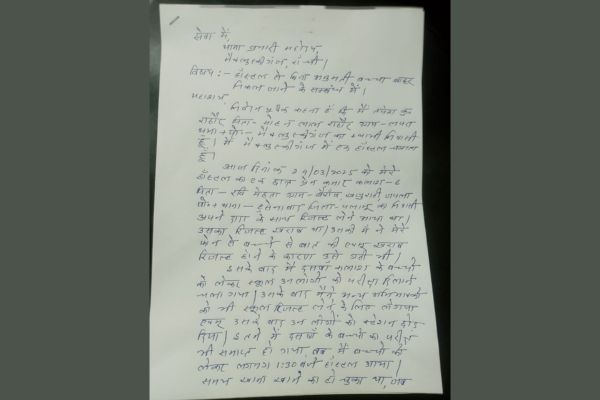 सेवा में,
थाना प्रभारी महोदय
मैक्लुस्कीगंज, रांची।
विषय:- हॉस्टल से बिना अनुमति बच्चा बाहर
निकल जाने के सम्बन्ध में।
महाशय
निवेदन पूर्वक कहना है कि मैं
राठौर पिता- मोहन लाल राठौर ग्राम- लपरा
थाना+पो०- मैक्लुस्कीगंज का स्थायी निवासी
हूँ। मैं मैक्लुस्कीगंज में एक हॉस्टल चलाता
हूँ।
आज दिनांक 29/03/2025 को मेरे
हॉस्टल का एक छात्र प्रेम कुमार कलास-6
पिता- रवि मेहता ग्राम- खजुराही जपला
पो०+थाना- हुसैनाबाद जिला- पलामू का निवासी
अपने माता के साथ रिजल्ट लेने आया था।
उसका रिजल्ट खराब था। उसकी माँ ने मेरे
फोन से बच्चे से बात की एवम् खराब
रिजल्ट होने के कारण उसे डांटी भी।
इसके बाद मैं दसवीं कलास के बच्चों
को लेकर स्कूल उनलोगों को परीक्षा दिलाने
चला गया। उसके बाद मैंने अन्य अभिभावकों
को भी स्कूल रिजल्ट लेने के लिए लेगया
एवम् उसके बाद उन लोगों को स्टेशन छोड़
दिया। इतने में दसवीं के बच्चों का परीक्षा
भी समाप्त हो गया, तब, मैं बच्चों को
लेकर लगभग 1:30 बजे हॉस्टल आया।
समय खाना खाने का हो चुका था, जब